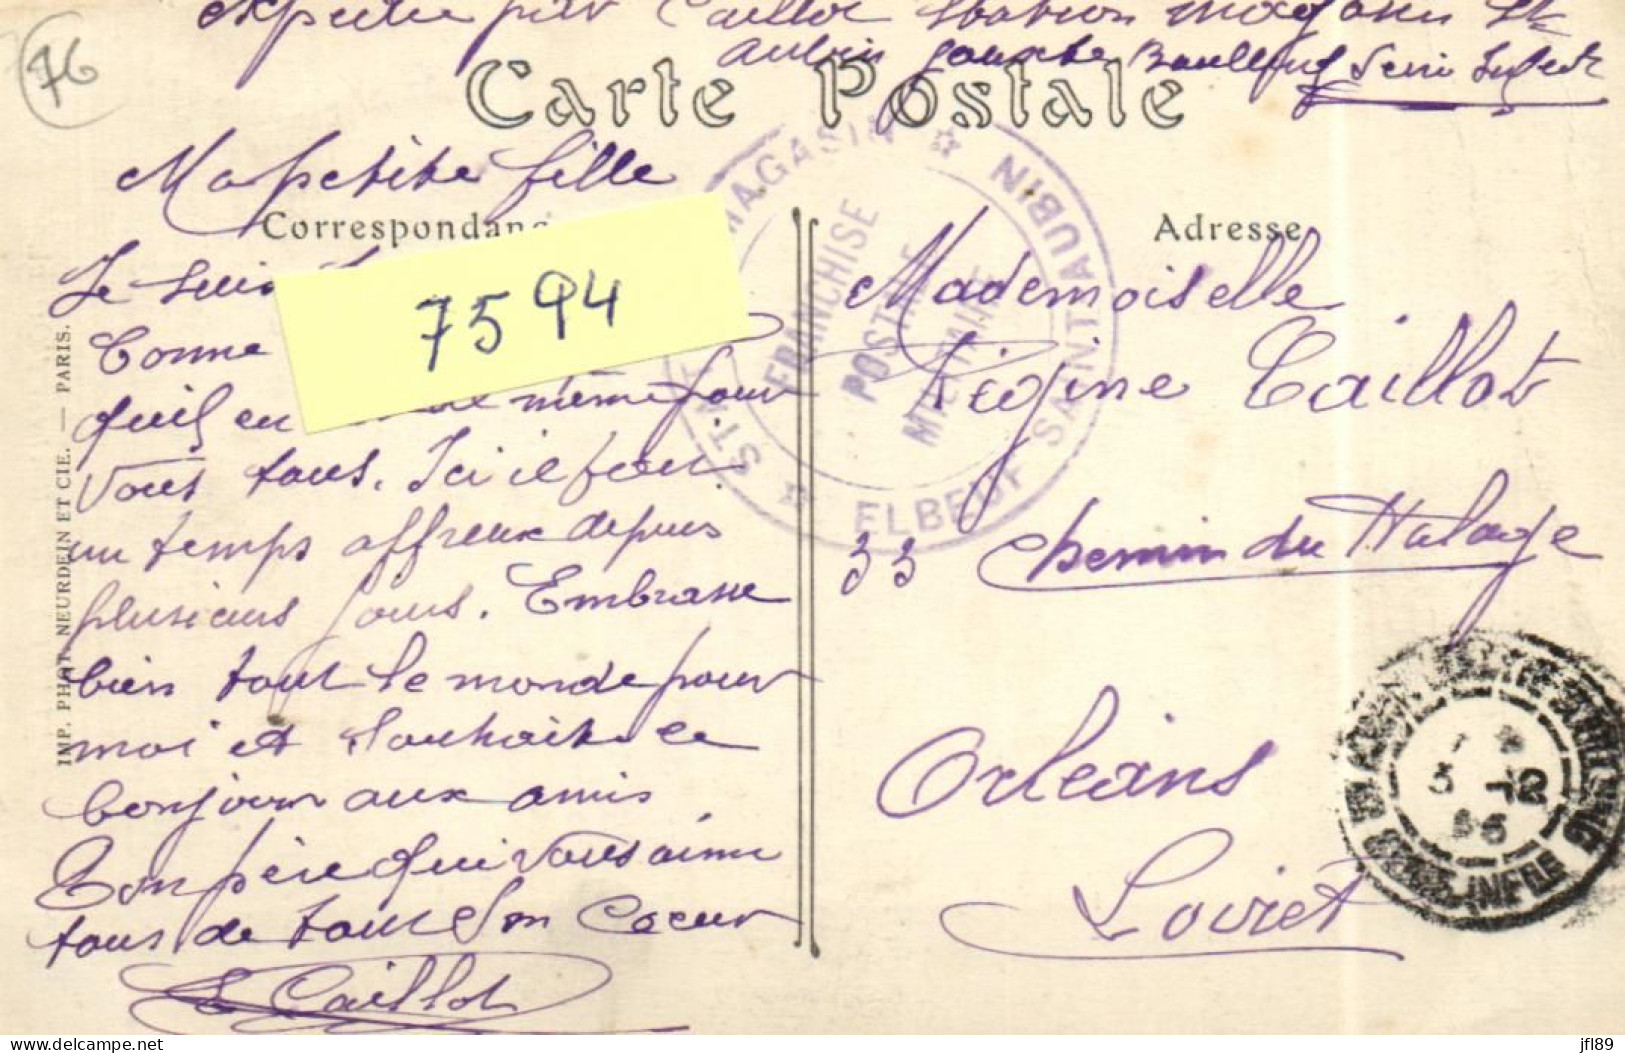 76
Expédié par Caillot Station magasin St
Aubin Seine Infere
Carte Postale
Ma petite fille
Correspondanc
Adresse
Je suis
7594
bonne
qu'il en même pour
vous tous. Ici il fait
un temps affreux depuis
plusieurs jours. Embrasse
bien tout le monde pour
moi et souhaite le
bonjour aux amis
Ton père qui vous aime
tous de tout son Coeur
E Caillot
Mademoiselle
Régine Caillot
33 Chemin du Halage
Orléans
Loiret
IMP. PHOT. NEURDEIN ET CIE. — PARIS.
MAGASIN ☆ ELBEUF SAINT AUBIN ☆
FRANCHISE
POSTALE
MILITAIRE
5 -12
INFRE
jfl89